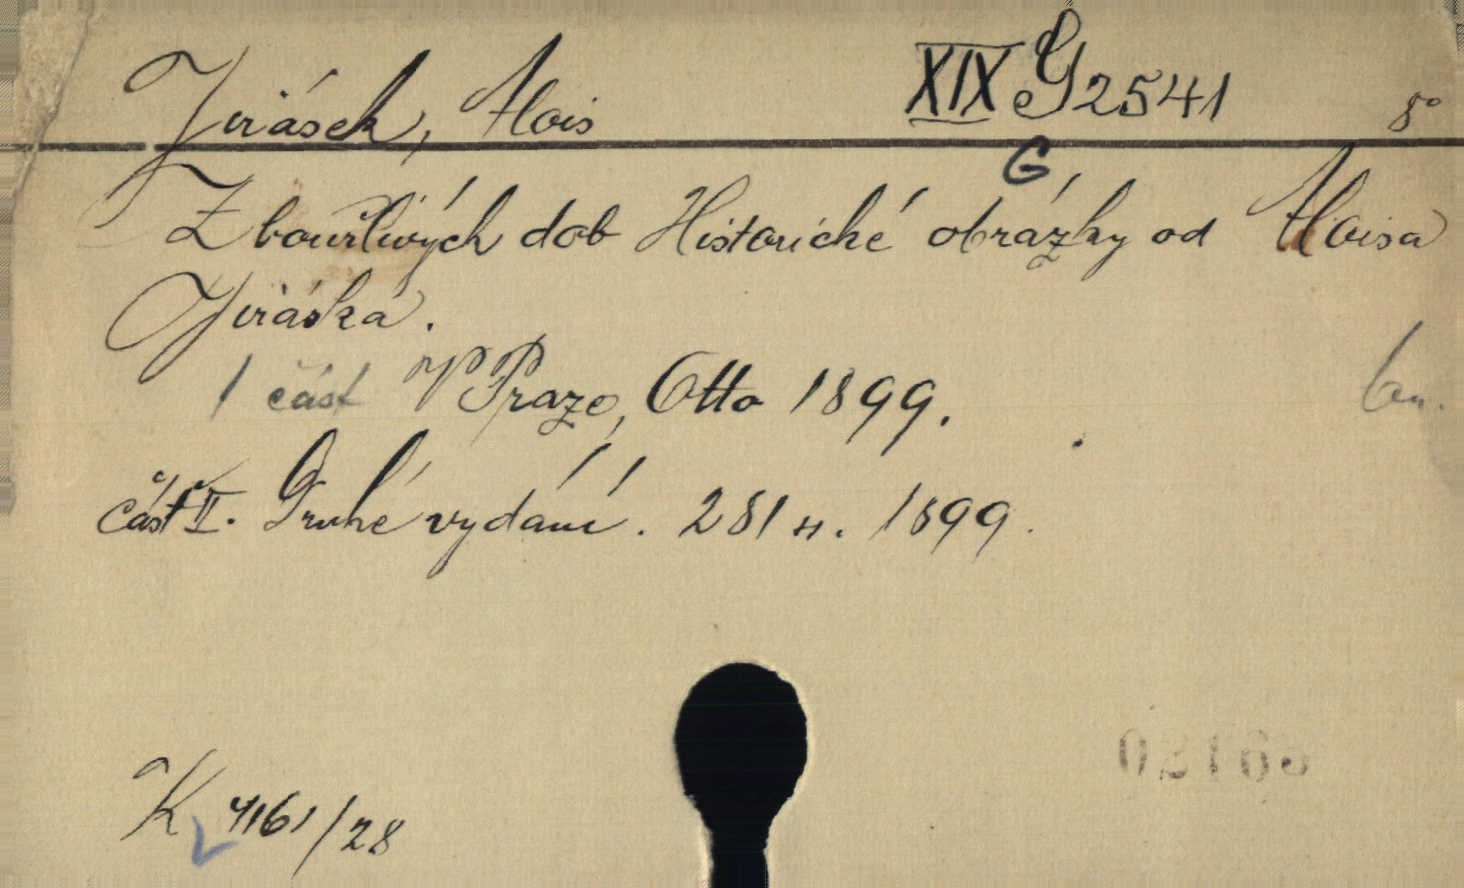 Jirásek, Alois XIX G 2541 8°
G
Z bouřlivých dob Historické obrázky od Aloisa
Jiráska.
1 část V Praze, Otto 1899.
část II. Druhé vydání. 281 s. 1899.
K 4161/28